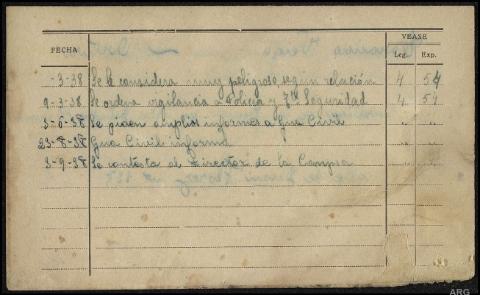 VEASE
FECHA Leg. Exp.
-3-38 Se le considera muy peligroso, según relación 4 54
9-3-38 Se ordena vigilancia a Policia y Seguridad 4 54
3-6-38 Se piden amplios informes a Gua Civil " "
23-8-38 Gua Civil informa " "
3-9-38 Se contesta al Director de la Campsa " "
ARG